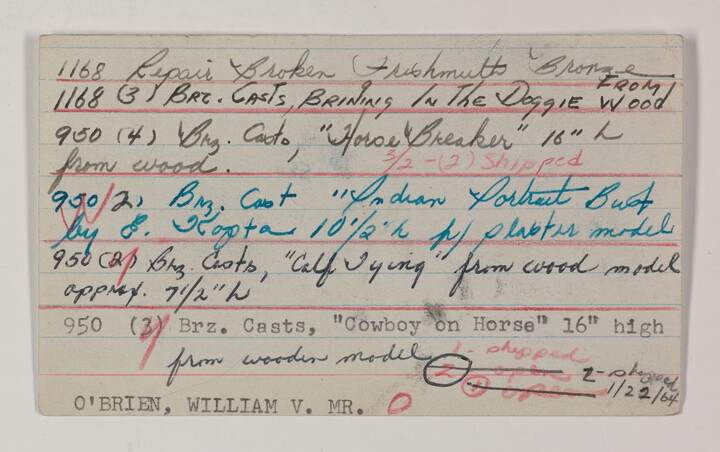 1168 Repair Broken Frishmuth Bronze
1168 (3) BRZ. CASTS, BRINING IN THE DOGGIE FROM WOOD
950 (4) Brz. Casts, "Horse Breaker" 16" h
from wood. 3/2-(2) Shipped
950 2) Brz. Cast "Indian Portrait Bust
by E. Kopta 10 1/2" h f/ plaster model
950 (2) Brz. Casts, "Calf Tying" from wood model
approx. 7 1/2" h
950 (3) Brz. Casts, "Cowboy on Horse" 16" high
from wooden model 1- shipped
2 open 2- shipped
1 open 1/22/64
O'BRIEN, WILLIAM V. MR. O